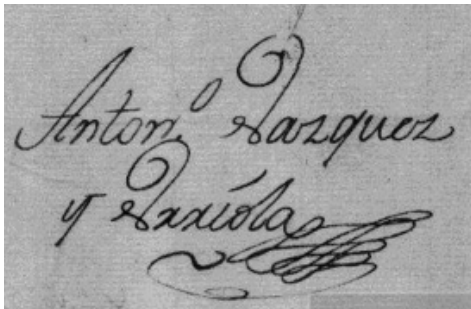 Anton.º Vazquez
y Vrríola